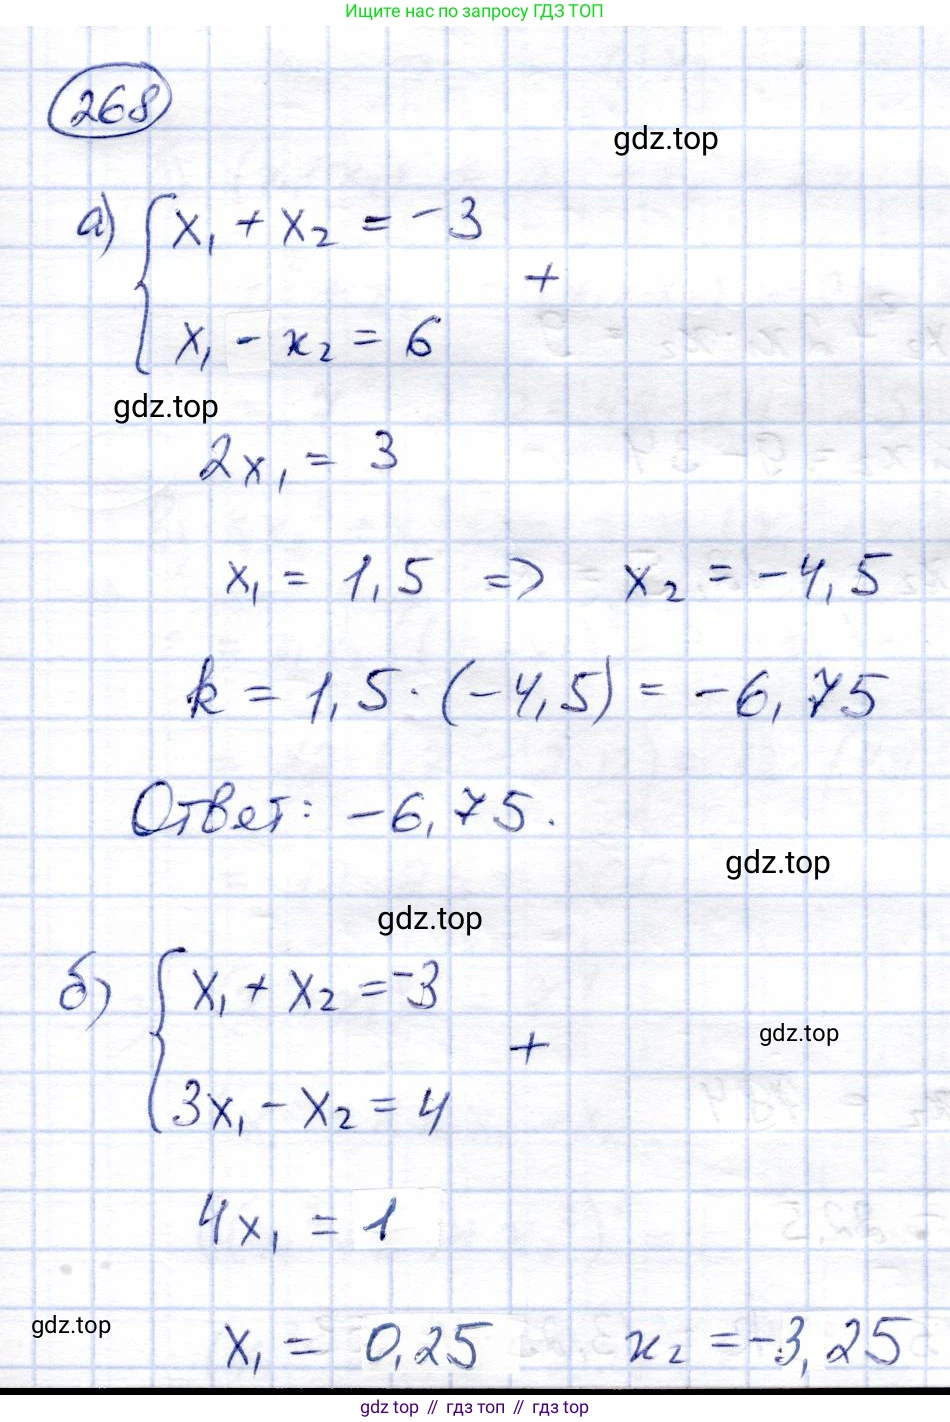 Ищите нас по запросу ГДЗ ТОП
268
gdz.top
а) { x₁ + x₂ = -3
+
x₁ - x₂ = 6
gdz.top
2x₁ = 3
x₁ = 1,5 => x₂ = -4,5
k = 1,5 · (-4,5) = -6,75
Ответ: -6,75.
gdz.top
gdz.top
б) { x₁ + x₂ = -3
gdz.top
+
3x₁ - x₂ = 4
4x₁ = 1
gdz.top
x₁ = 0,25 x₂ = -3,25
gdz top // гдз топ // gdz top